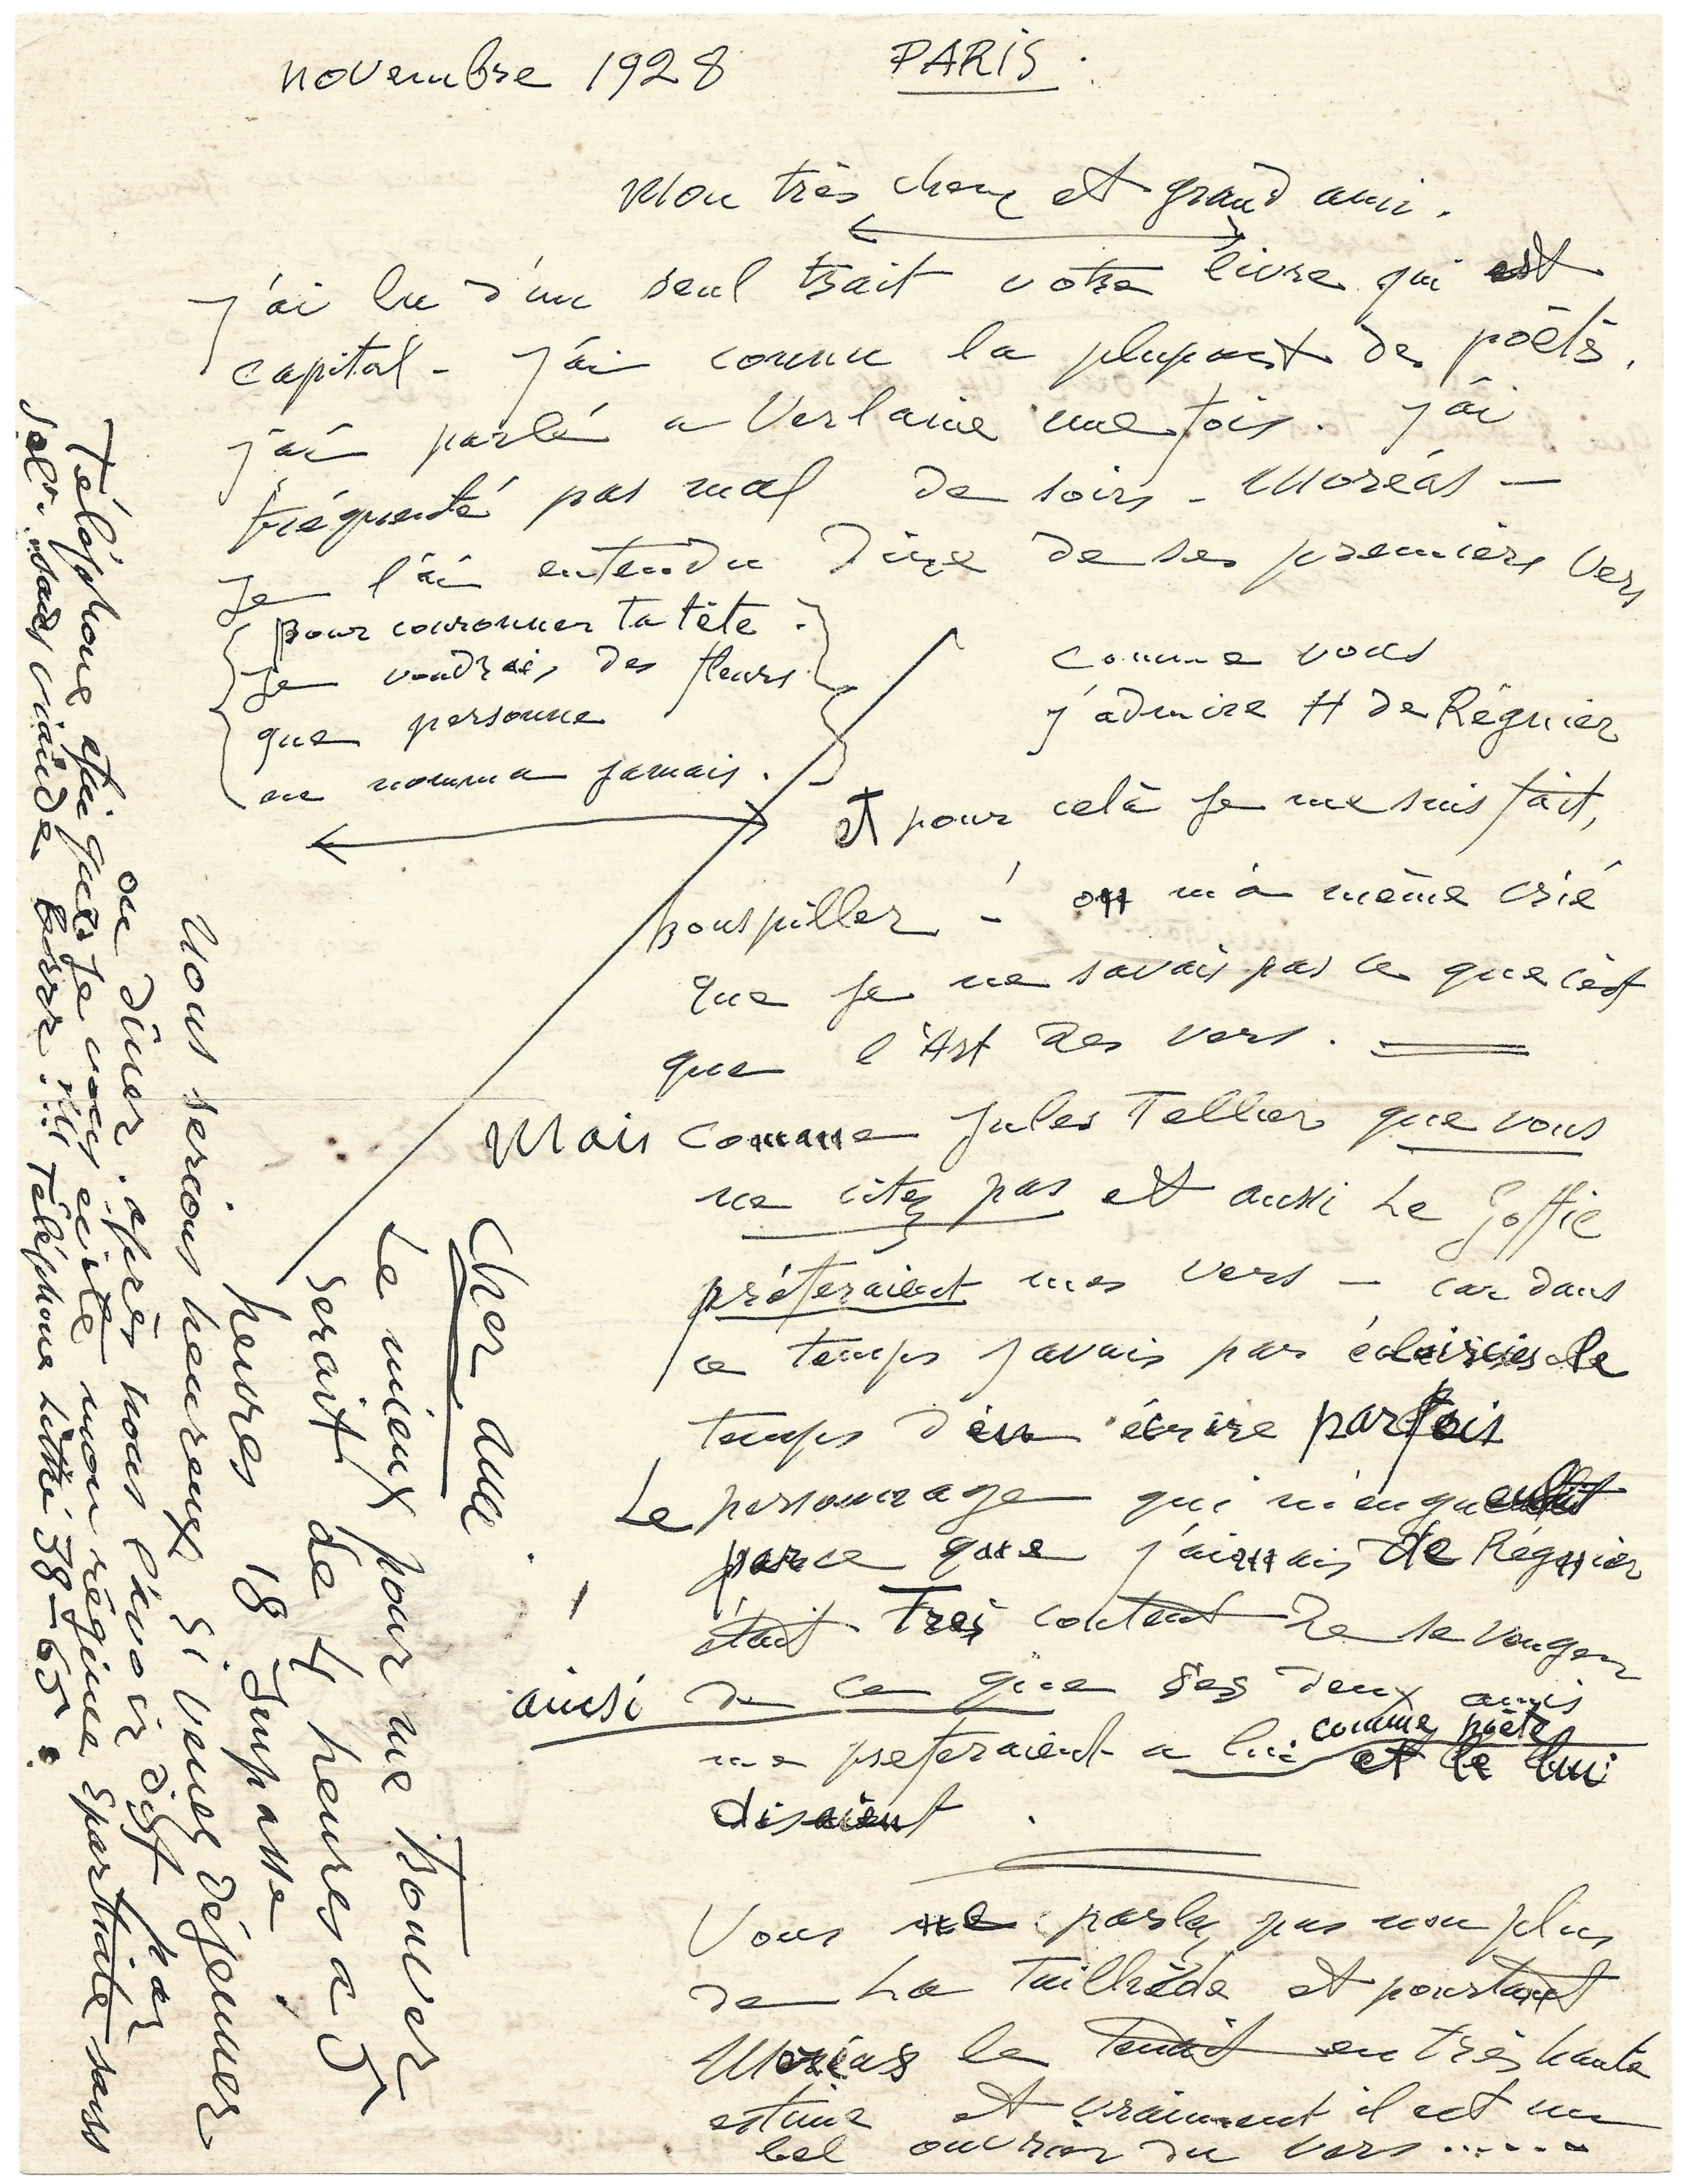 novembre 1928 PARIS.
Mon très cher et grand ami.
j'ai lu d'un seul trait votre livre qui est
capital - j'ai connu la plupart des poëtes.
j'ai parlé a Verlaine une fois. j'ai
fréquenté pas mal de soirs - Moréas -
je l'ai entendu dire de ses premiers vers
pour couronner ta tête.
je voudrais des fleurs
que personne
ne nomma jamais.
comme vous
j'admire H de Régnier
et pour celà je me suis fait,
houspiller - ! on m'a même crié
que je ne savais pas ce que c'est
que l'Art des vers.
Mais comme Jules Tellier que vous
ne citez pas et aussi Le Goffic
préféraient mes vers - car dans
ce temps j'avais par éclaircies le
temps d'en écrire parfois
Le personnage qui m'engueulait
parce que j'aimais de Régnier
était Très content de se venger
ainsi de ce que ses deux amis
me preferaient a lui comme poëte et le lui
disaient.
Vous ne parlez pas non plus
de La Tailhède et pourtant
Moréas le tenait en très haute
estime et vraiment il est un
bel ouvrier du vers......
Cher ami.
Le mieux pour me trouver
serait de 4 heures a 5
heures 18 Impasse
Nous serions heureux si venez déjeuner
ou dîner. après nous l'avoir dit par
Téléphone afin que je vous évite mon régime spartiate sans
sel. sans viande
Téléphone Littré 38-65.